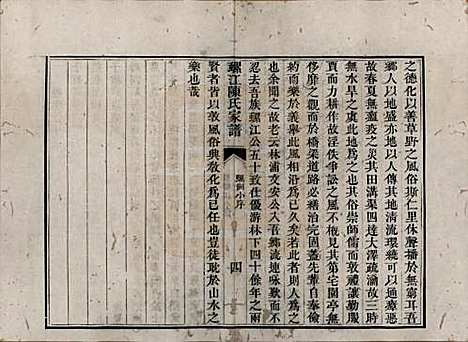 之德化以善草野之風俗斯仁里休聲播於無窮耳吾
鄉人以地盛亦地以人傳其地清流環繞可以通癈惡
故春夏無癘疫之災其田溝渠四達大澤疏瀹故三時
無水旱之虞此地為之也其俗崇師儒而敦禮讓勤服
賈而力耕作故淫佚爭訟之風不概見其第宅園亭無
侈靡之觀而於橋梁道路必緒治完固蓋先事自奉儉
約而樂於義舉此風相沿為已久是以地與人則人為之
也余聞之故老云林浦文安公入吾鄉流連咏歎而不
忍去吾族螺江公五十致仕優游林下四十餘年之兩
賢者皆以敦風俗典敎化為已任豈徒耽於山水之
樂也哉
螺江陳氏家譜
小序
四